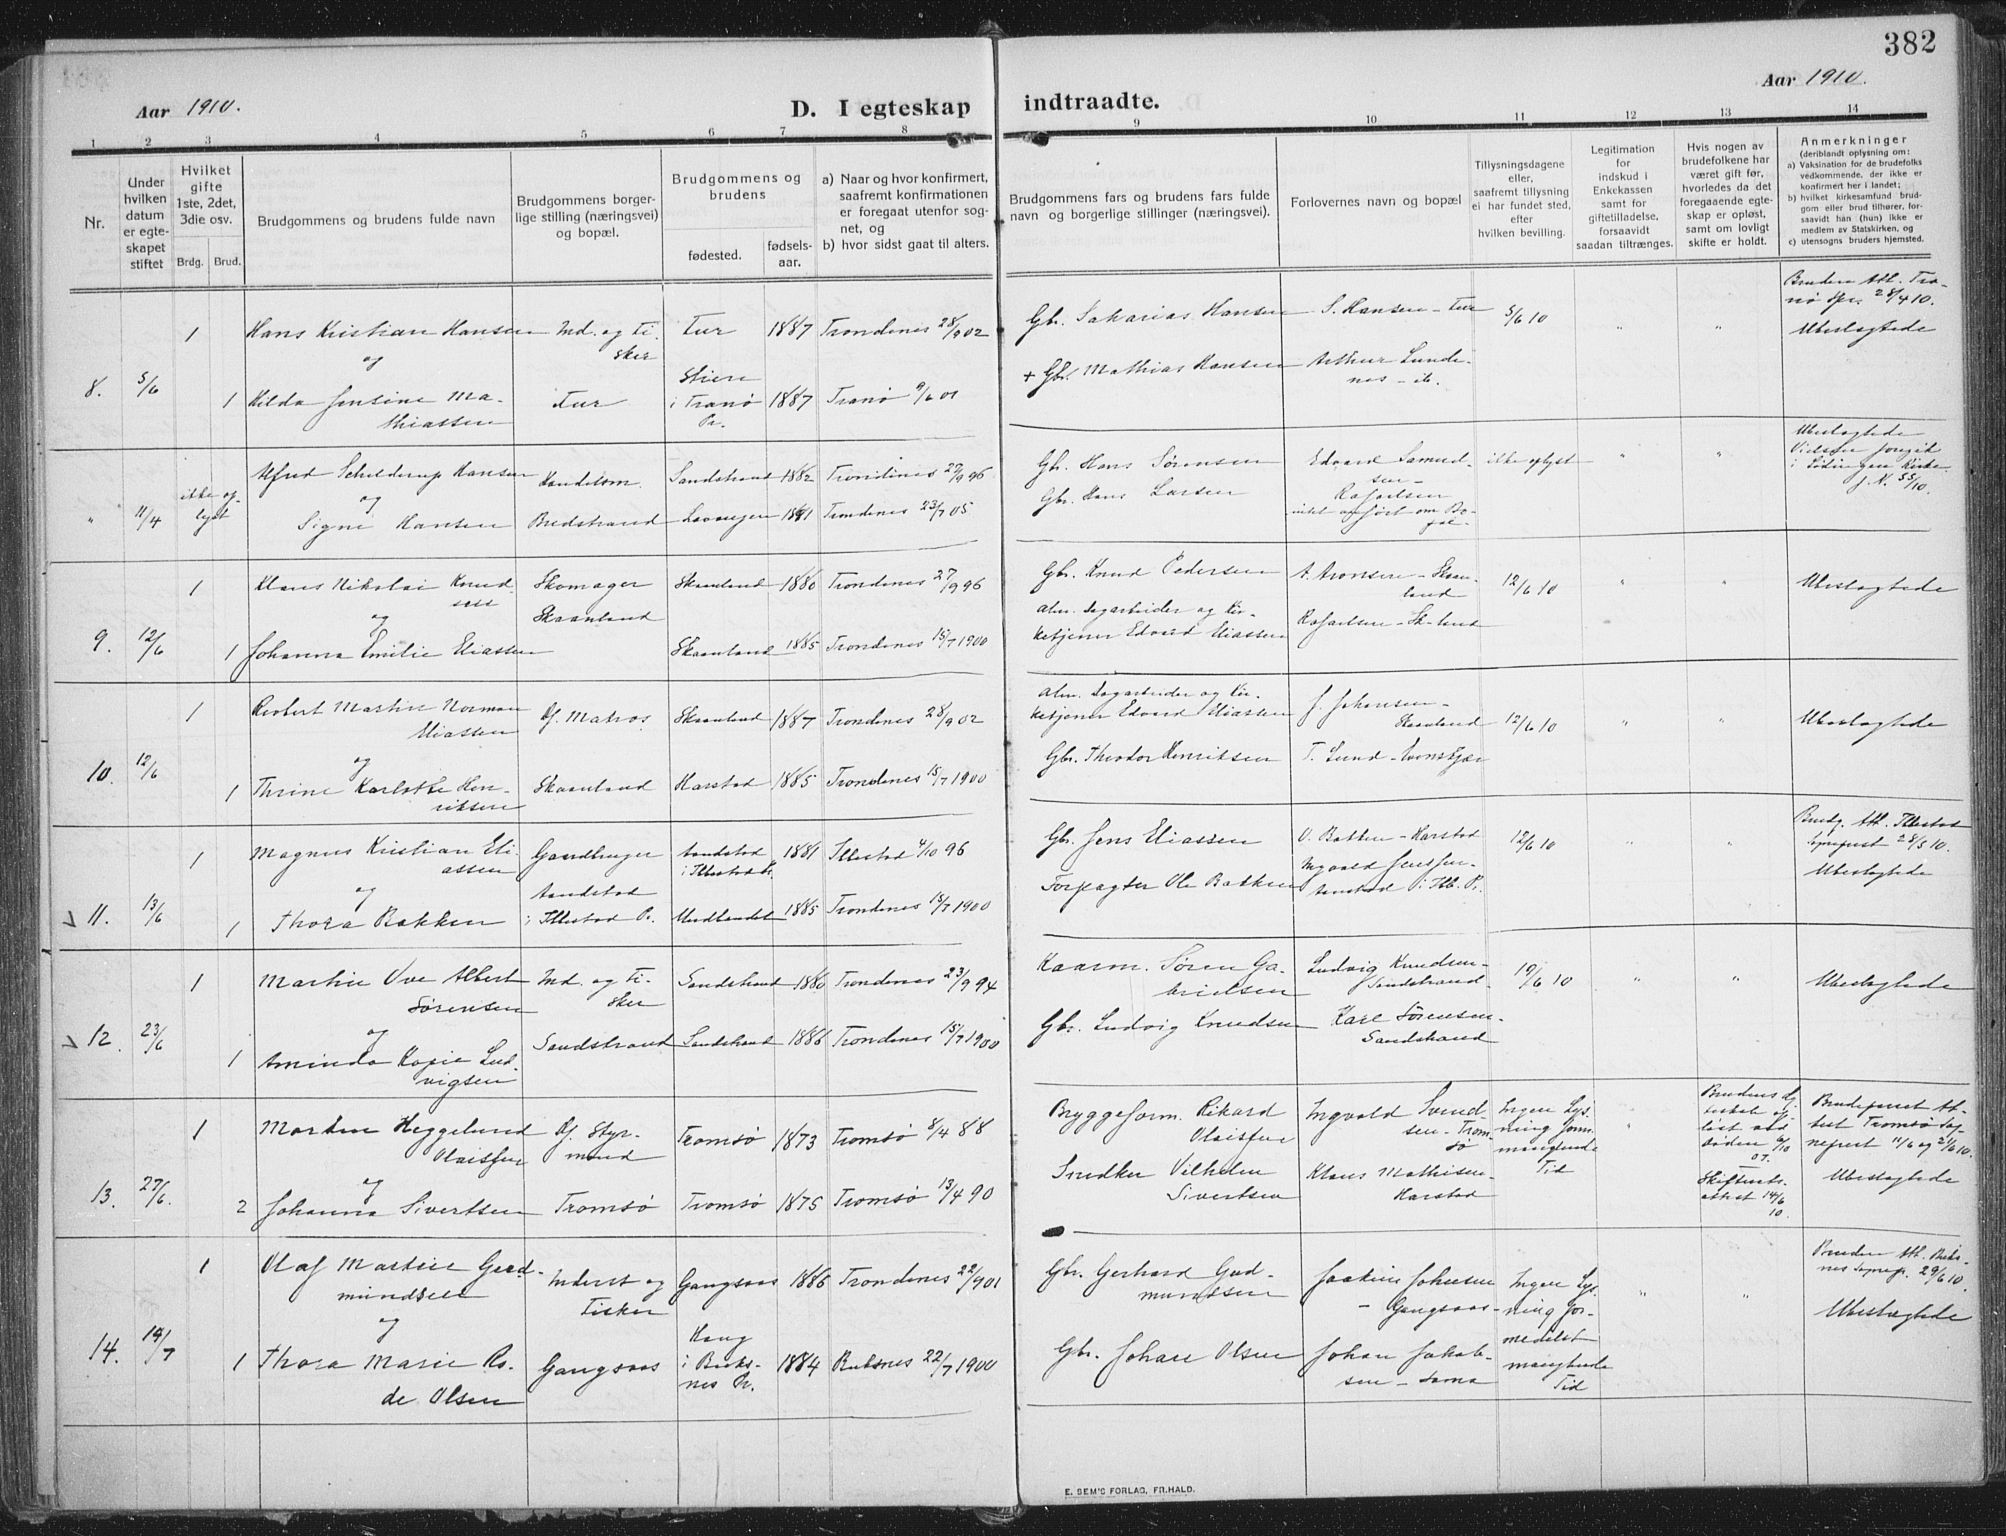 382
Aar 1910.
D. I egteskap indtraadte.
Aar 1910.
1 2 3 4 5 6 7 8 9 10 11 12 13 14
Nr.
Under hvilken datum er egteskapet stiftet
Hvilket gifte 1ste, 2det, 3die osv.
Brdg. Brud.
Brudgommens og brudens fulde navn
Brudgommens borgerlige stilling (næringsvei) og bopæl.
Brudgommens og brudens
fødested.
fødselsaar.
a) Naar og hvor konfirmert, saafremt konfirmationen er foregaat utenfor sognet, og
b) hvor sidst gaat til alters.
Brudgommens fars og brudens fars fulde navn og borgerlige stillinger (næringsvei).
Forlovernes navn og bopæl
Tillysningsdagene eller, saafremt tillysning ei har fundet sted, efter hvilken bevilling.
Legitimation for indskud i Enkekassen samt for giftetilladelse, forsaavidt saadan tiltrænges.
Hvis nogen av brudefolkene har været gift før, hvorledes da det foregaaende egteskap er opløst, samt om lovligt skifte er holdt.
Anmerkninger
(deriblandt oplysning om:
a) Vaksination for de brudefolks vedkommende, der ikke er konfirmert her i landet;
b) hvilket kirkesamfund brudgom eller brud tilhører, forsaavidt han (hun) ikke er medlem av Statskirken, og
c) utensogns bruders hjemsted.
8. 5/6
1 Hans Kristian Hansen Ind. og Fisker Tur 1887 Trondenes 28/9 02 Gbr. Sakarias Hansen S. Hansen - Tur 5/6 10 " "
og
1 Hilda Jensine Mathiassen Tur i Tranø Pr. 1887 Tranø 9/6 01 + Gbr. Mathias Hansen Arthur Lundenes - ib.
Bruden Att. Tranø Spr. 28/4 10.
Ubeslægtede
" 11/4 ikke oplyst
Alfred Schelderup Hansen Handelsm. Sandstrand 1882 Trondenes 27/9 96 Gbr. Hans Sørensen Edvard Samuelsen - ikke oplyst " "
og
Signe Hansen Bredstrand Lavangen 1891 Trondenes 23/7 05 Gbr. Hans Larsen Rafaelsen
intet anført om Bopæl -
Ubeslægtede
Vielsen foregik i Lødingen Kirke
9. 12/6
1 Klaus Nikolai Knudsen Skomager Skaanland 1880 Trondenes 27/9 96 Gbr. Knud Pedersen A. Aronsen - Skaanland 12/6 10 " " Ubeslægtede
og Skaanland
1 Johanna Emilie Eliassen Skaanland 1885 Trondenes 15/7 1900 alm. Dagarbeider og Kirketjener Edvard Eliassen Rafaelsen - Sk-land
10. 12/6
1 Robert Martin Norman Eliassen Uf. Matros Skaanland 1887 Trondenes 28/9 02 alm. Dagarbeider og Kirketjener Edvard Eliassen J. Johansen - Skaanland 12/6 10 " " Ubeslægtede
og
1 Thrine Karlotte Henriksen Skaanland Harstad 1885 Trondenes 15/7 1900 Gbr. Theodor Henriksen T. Lund -
11. 13/6
1 Magnus Kristian Eliassen Gaardbruger i Ibbestad Pr. 1881 Ibbestad 4/10 96 Gbr. Jens Eliassen O. Bakken - Harstad 12/6 10
og
1 Thora Bakken i Ibbestad Pr. 1885 Trondenes 15/7 1900 Forpagter Ole Bakken Ingvald Jenssen - i Ibb. Pr.
Brudg. Att. Ibbestad Sognepræst 28/5 10.
Ubeslægtede
12. 23/6
1 Martin Ove Albert Sørensen Ind. og Fisker Sandstrand 1880 Trondenes 23/9 94 Kaarm. Søren Gabrielsen Ludvig Knudsen - Sandstrand 19/6 10 " " Ubeslægtede
og
1 Aminda Kasie Ludvigsen Sandstrand Sandstrand 1886 Trondenes 15/7 1900 Gbr. Ludvig Knudsen Karl Sørensen - Sandstrand
13. 27/6
1 Morten Heggelund Olaissen Uf. Styrmand Tromsø 1873 Tromsø 8/4 88 Bryggeform. Rikard Olaissen Ingvald Svendsen - Tromsø Ingen Lysning form. manglende Tid "
og
2 Johanna Sivertsen Tromsø Tromsø 1875 Tromsø 13/4 90 Snedker Vilhelm Sivertsen Klaus Mathisen - Harstad
Brudens Egteskab opløst ved Døden 6/10 07.
Skifteretsattest 14/6 10.
Brudeparret Attest Tromsø Sognepræst 11/6 og 21/6 10.
Ubeslægtede
14. 14/7
1 Olaf Martin Gudmundsen Inderst og Fisker Gangsaas 1886 Trondenes 22/9 01 Gbr. Gerhard Gudmundsen Joakim Johnsen - Gangsaas - Ingen Lysning formedelst manglende Tid " "
og
1 Thora Marie Rode Olsen Gangsaas Haug i Buksnes Pr. 1884 Buksnes 22/7 1900 Gbr. Johan Olsen Johan Jakobsen - Sama
Bruden Att. Buksnes Sognepr. 29/6 10.
Ubeslægtede
E. SEM'S FORLAG, FR.HALD.